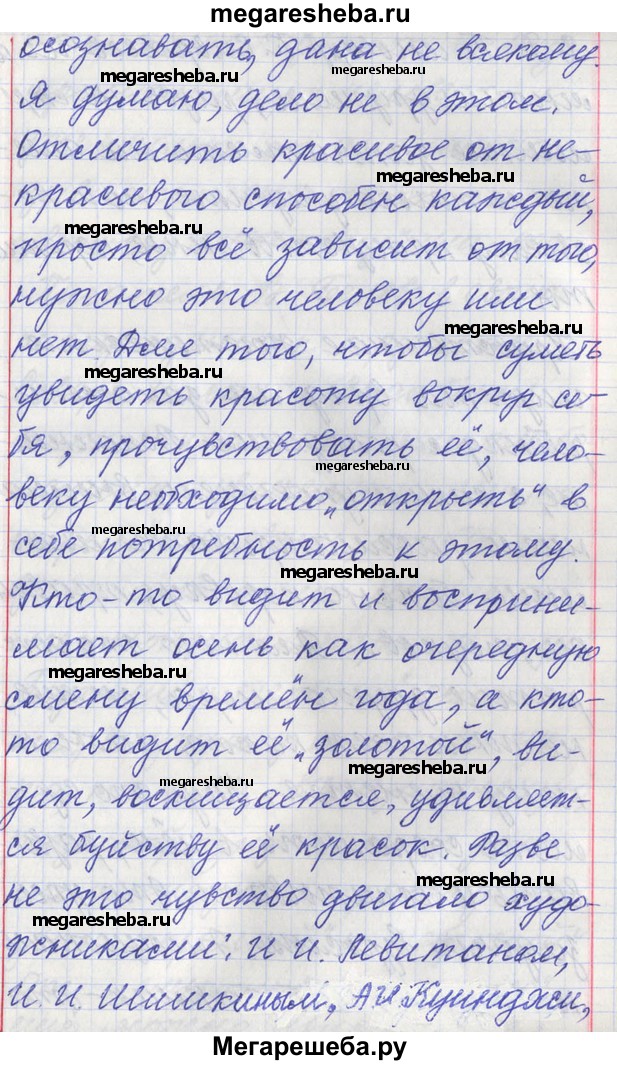 megaresheba.ru
осознавать, дана не всякому.
megaresheba.ru
megaresheba.ru
Я думаю, дело не в этом.
Отличить красивое от не-
megaresheba.ru
красивого способен каждый,
megaresheba.ru
просто всё зависит от того,
нужно это человеку или
megaresheba.ru
нет. Для того, чтобы суметь
megaresheba.ru
увидеть красоту вокруг се-
бя, прочувствовать её, чело-
megaresheba.ru
веку необходимо „открыть“ в
megaresheba.ru
себе потребность к этому.
megaresheba.ru
Кто-то видит и восприни-
мает осень как очередную
megaresheba.ru
смену времён года, а кто-
то видит её „золотой“, ви-
megaresheba.ru
megaresheba.ru
дит, восхищается, удивляет-
ся буйству её красок. Разве
megaresheba.ru
не это чувство двигало худо-
megaresheba.ru
жниками: И. И. Левитаном,
И. И. Шишкиным, А.И. Куинджи,
Мегарешеба.ру